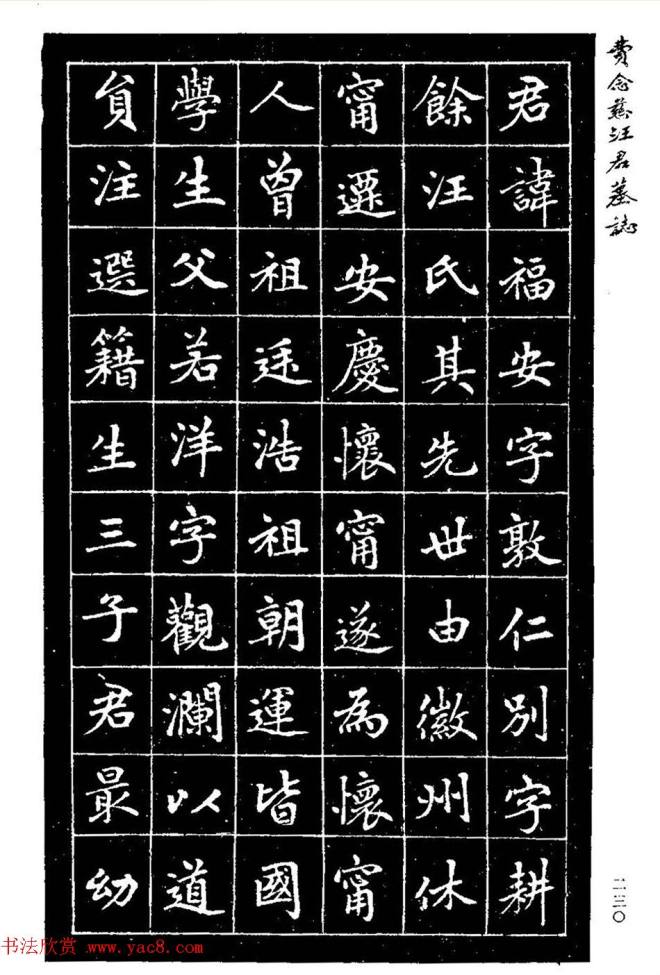 費念慈汪君墓誌
君諱福安字敦仁別字耕
餘汪氏其先世由徽州休
甯遷安慶懷甯遂為懷甯
人曾祖廷浩祖朝運皆國
學生父若洋字觀瀾以道
員注選籍生三子君最幼
二三〇
书法欣赏 www.yac8.com